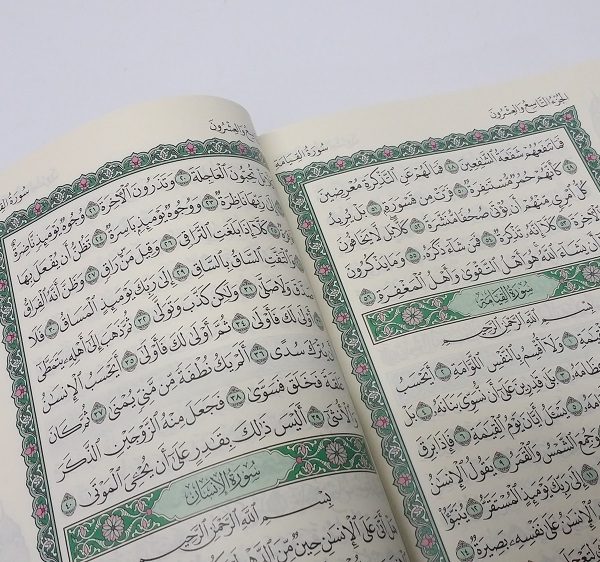 الجزء التاسع والعشرون
سورة القيامة
فَمَا تَنفَعُهُمْ شَفَٰعَةُ ٱلشَّٰفِعِينَ ٤٨ فَمَا لَهُمْ عَنِ ٱلتَّذْكِرَةِ مُعْرِضِينَ
٤٩ كَأَنَّهُمْ حُمُرٌ مُّسْتَنفِرَةٌ ٥٠ فَرَّتْ مِن قَسْوَرَةٍ ٥١ بَلْ يُرِيدُ
كُلُّ ٱمْرِئٍ مِّنْهُمْ أَن يُؤْتَىٰ صُحُفًا مُّنَشَّرَةً ٥٢ كَلَّا بَل لَّا يَخَافُونَ
ٱلْءَاخِرَةَ ٥٣ كَلَّا إِنَّهُۥ تَذْكِرَةٌ ٥٤ فَمَن شَآءَ ذَكَرَهُۥ ٥٥ وَمَا يَذْكُرُونَ
إِلَّآ أَن يَشَآءَ ٱللَّهُ هُوَ أَهْلُ ٱلتَّقْوَىٰ وَأَهْلُ ٱلْمَغْفِرَةِ ٥٦
سورة القيامة
بِسْمِ ٱللَّهِ ٱلرَّحْمَٰنِ ٱلرَّحِيمِ
١ وَلَآ أُقْسِمُ بِٱلنَّفْسِ ٱللَّوَّامَةِ ٢ أَيَحْسَبُ
عِظَامَهُۥ ٣ بَلَىٰ قَٰدِرِينَ عَلَىٰٓ أَن نُّسَوِّىَ بَنَانَهُۥ ٤ بَلْ
٥ يَسْـَٔلُ أَيَّانَ يَوْمُ ٱلْقِيَٰمَةِ ٦ فَإِذَا بَرِقَ
وَجُمِعَ ٱلشَّمْسُ وَٱلْقَمَرُ ٩ يَقُولُ ٱلْإِنسَٰنُ
إِلَىٰ رَبِّكَ يَوْمَئِذٍ ٱلْمُسْتَقَرُّ ١٢ يُنَبَّؤُا۟
ٱلْإِنسَٰنُ عَلَىٰ نَفْسِهِۦ بَصِيرَةٌ ١٤
والعشرون
سورة
بَلْ تُحِبُّونَ ٱلْعَاجِلَةَ ٢٠ وَتَذَرُونَ ٱلْءَاخِرَةَ ٢١ وُجُوهٌ يَوْمَئِذٍ نَّاضِرَةٌ
٢٢ إِلَىٰ رَبِّهَا نَاظِرَةٌ ٢٣ وَوُجُوهٌ يَوْمَئِذٍۭ بَاسِرَةٌ ٢٤ تَظُنُّ أَن يُفْعَلَ بِهَا
٢٥ كَلَّآ إِذَا بَلَغَتِ ٱلتَّرَاقِىَ ٢٦ وَقِيلَ مَنْ رَاقٍ ٢٧ وَظَنَّ أَنَّهُ ٱلْفِرَاقُ
٢٨ وَٱلْتَفَّتِ ٱلسَّاقُ بِٱلسَّاقِ ٢٩ إِلَىٰ رَبِّكَ يَوْمَئِذٍ ٱلْمَسَاقُ ٣٠ فَلَا
وَلَا صَلَّىٰ ٣١ وَلَٰكِن كَذَّبَ وَتَوَلَّىٰ ٣٢ ثُمَّ ذَهَبَ إِلَىٰٓ أَهْلِهِۦ يَتَمَطَّىٰٓ
٣٣ لَكَ فَأَوْلَىٰ ٣٤ ثُمَّ أَوْلَىٰ لَكَ فَأَوْلَىٰٓ ٣٥ أَيَحْسَبُ ٱلْإِنسَٰنُ
يُتْرَكَ سُدًى ٣٦ أَلَمْ يَكُ نُطْفَةً مِّن مَّنِىٍّ يُمْنَىٰ ٣٧ ثُمَّ كَانَ
عَلَقَةً فَخَلَقَ فَسَوَّىٰ ٣٨ فَجَعَلَ مِنْهُ ٱلزَّوْجَيْنِ ٱلذَّكَرَ
وَٱلْأُنثَىٰٓ ٣٩ أَلَيْسَ ذَٰلِكَ بِقَٰدِرٍ عَلَىٰٓ أَن يُحْـِۧىَ ٱلْمَوْتَىٰ ٤٠
سورة الإنسان
بِسْمِ ٱللَّهِ ٱلرَّحْمَٰنِ ٱلرَّحِيمِ
أَتَىٰ عَلَى ٱلْإِنسَٰنِ حِينٌ مِّنَ ٱلدَّهْرِ